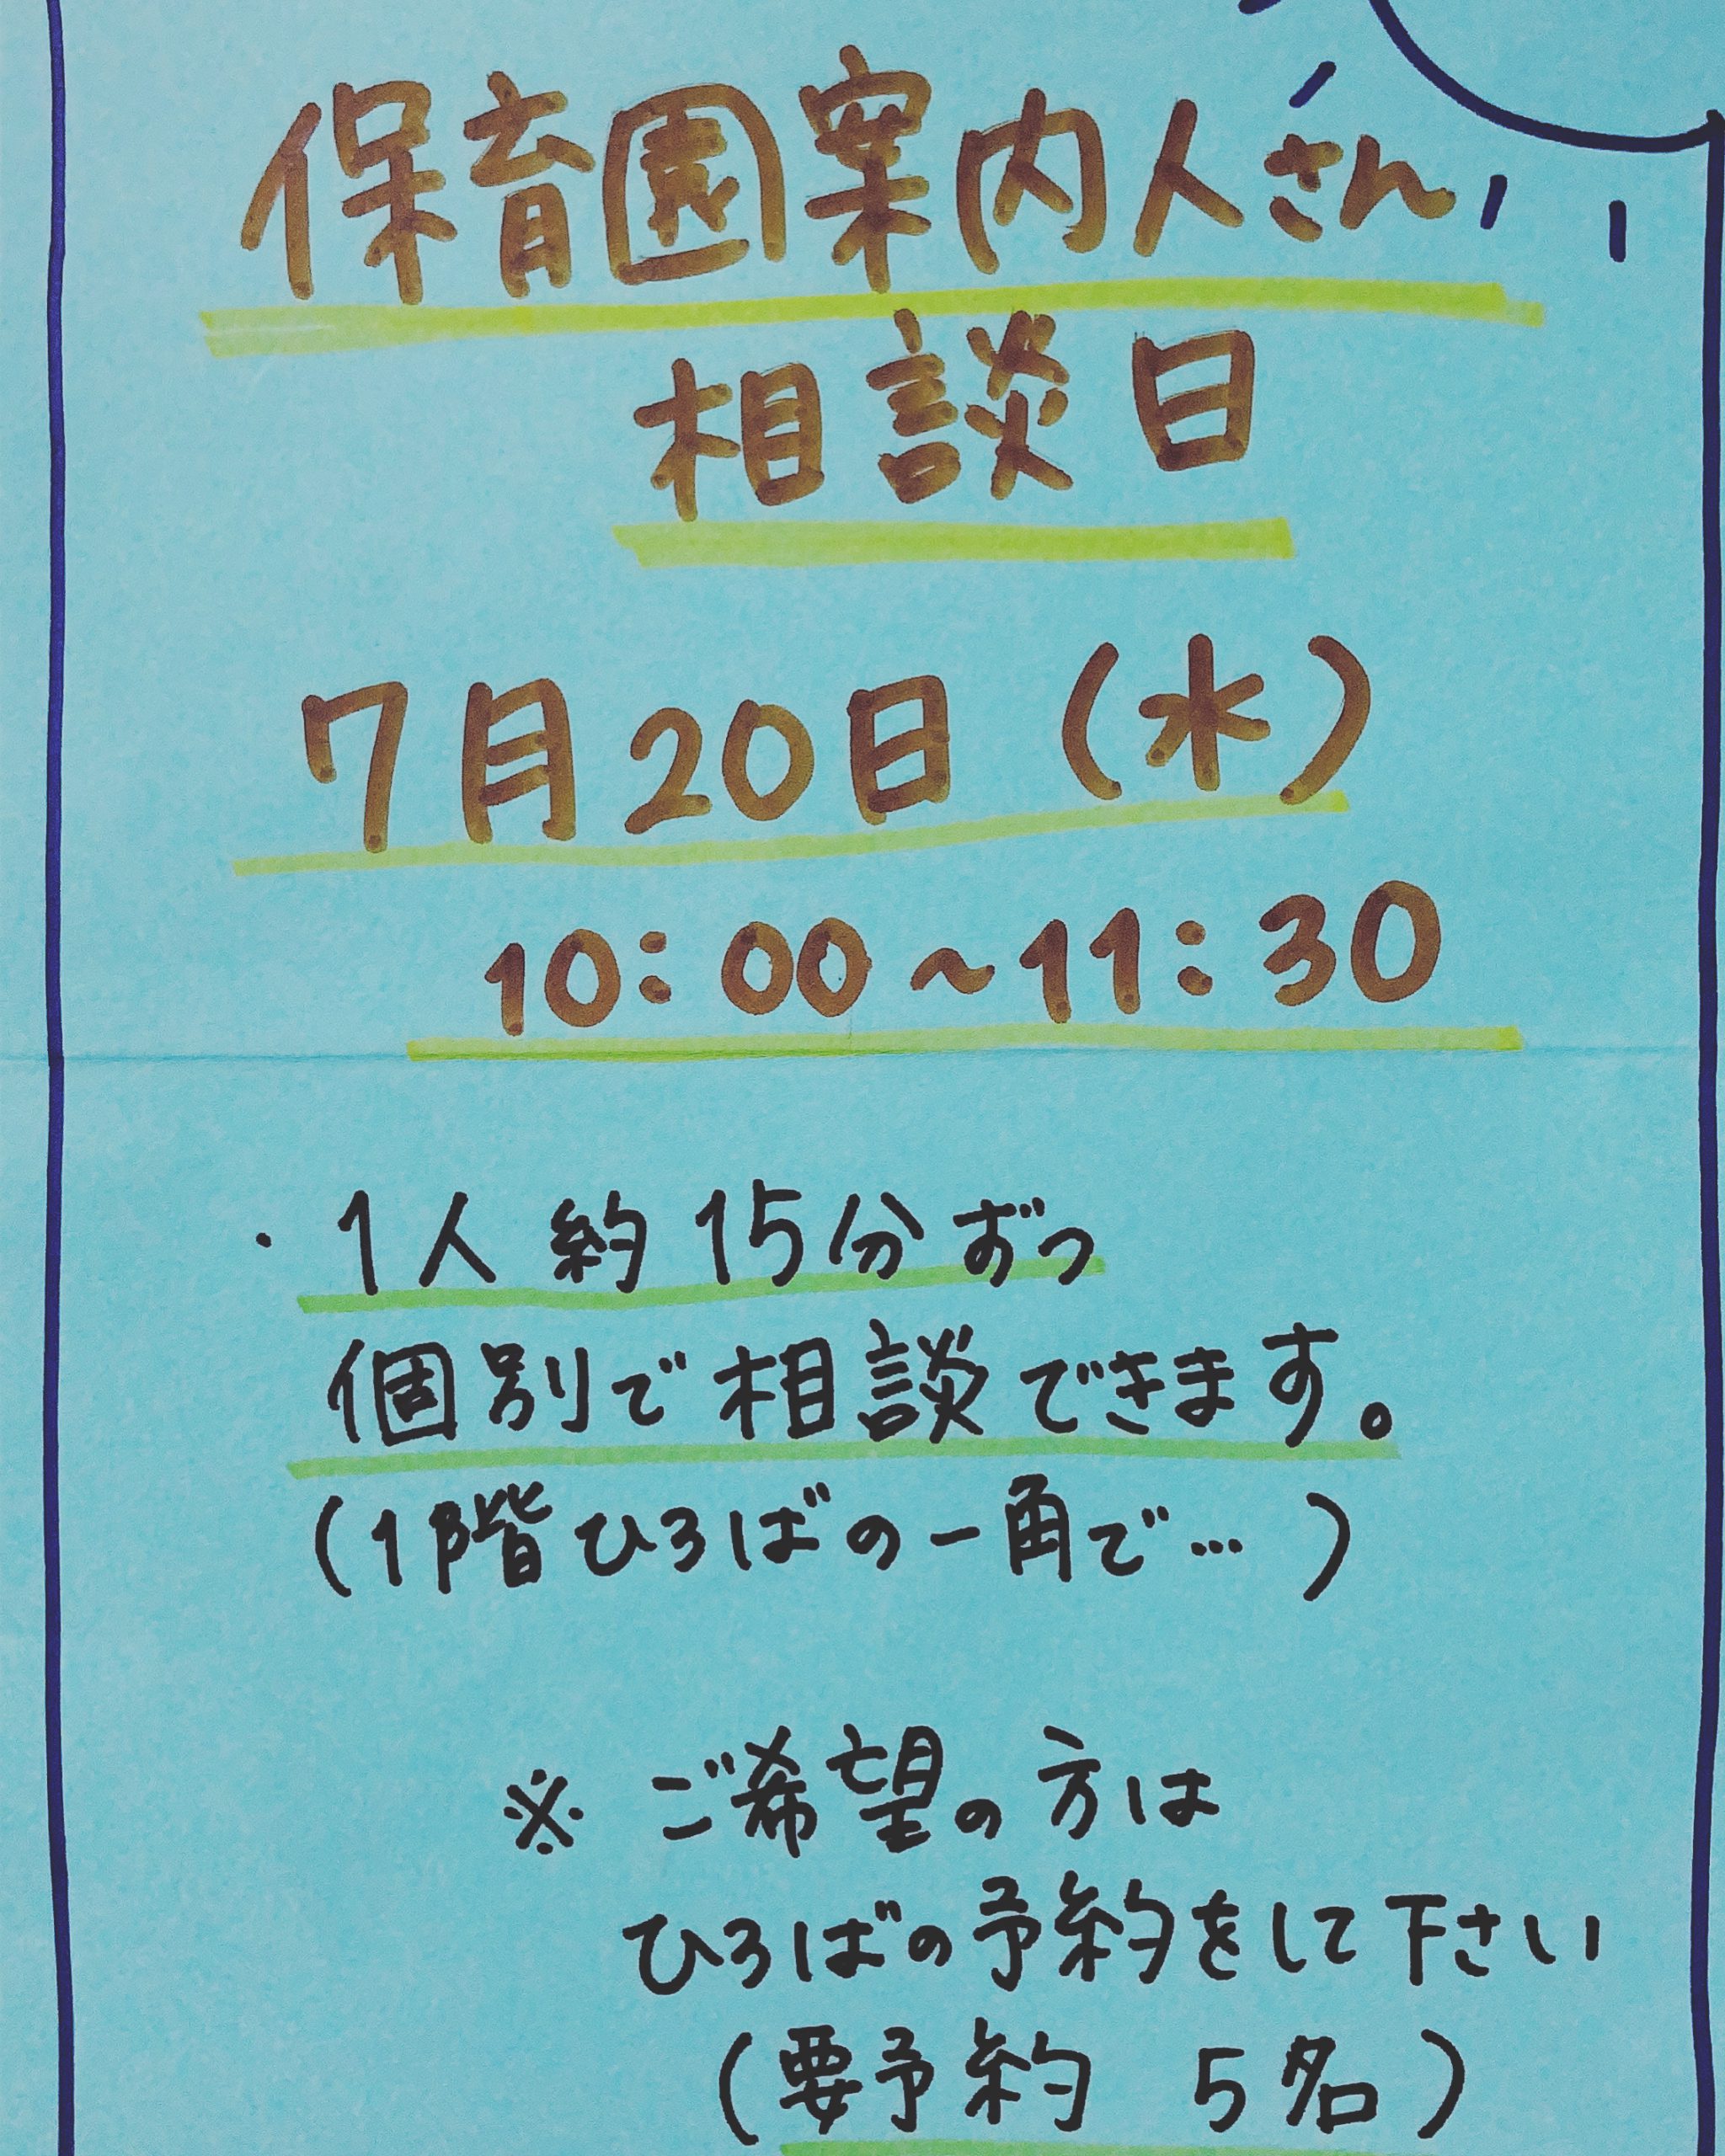 保育園案内人さん
相談日
7月20日(水)
10:00～11:30
・1人約15分ずつ
個別で相談できます。
(1階ひろばの一角で…)
※ご希望の方は
ひろばの予約をして下さい
(要予約 5名)